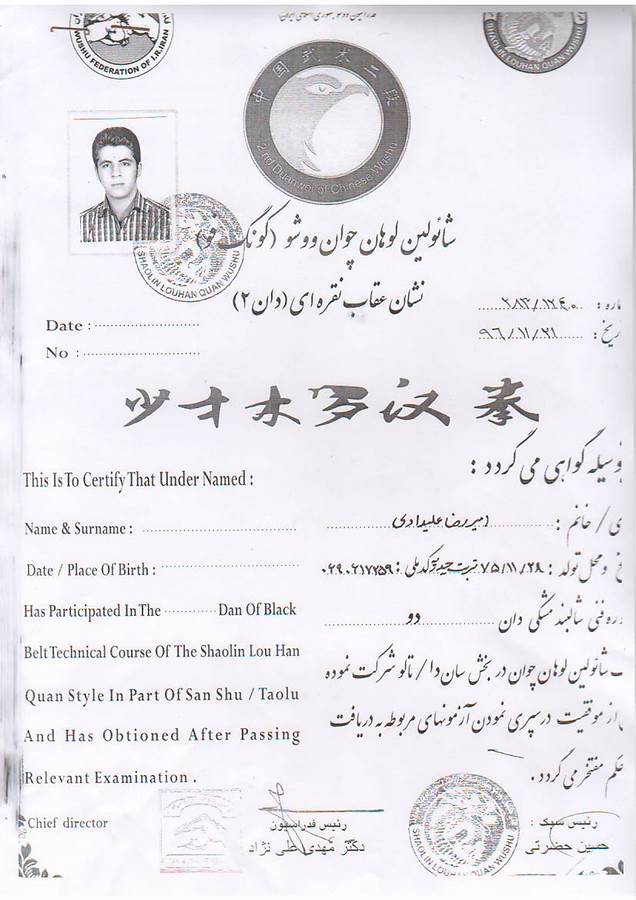 فدراسیون ووشو جمهوری اسلامی ایران
WUSHU FEDERATION OF I.R.IRAN
SHAOLIN LOUHAN QUAN WUSHU
中国武术二段
2nd Duanwei of Chinese Wushu
SHAOLIN LOUHAN QUAN WUSHU
شائولین لوهان چوان ووشو (گونگ فو)
نشان عقاب نقره ای (دان ۲)
اره :
ریخ : ۹۶/۱۱/۲۱
Date :
No :
少林罗汉拳
وسیله گواهی می گردد :
This Is To Certify That Under Named :
ی / خانم : امیررضا علیدادی
Name & Surname :
خ و محل تولد : ۷۵/۱۱/۲۸ تربت حیدریه کد ملی :
Date / Place Of Birth :
وره فنی شالبند مشکی دان دو
Has Participated In The Dan Of Black
Belt Technical Course Of The Shaolin Lou Han
ک شائولین لوهان چوان در بخش سان دا / تالو شرکت نموده
Quan Style In Part Of San Shu / Taolu
از موفقیت در سپری نمودن آزمونهای مربوطه به دریافت
And Has Obtioned After Passing
حکم مفتخر می گردد .
Relevant Examination .
Chief director
رئیس فدراسیون
دکتر مهدی علی نژاد
رئیس سبک :
حسین حضرتی
SHAOLIN LOUHAN QUAN WUSHU